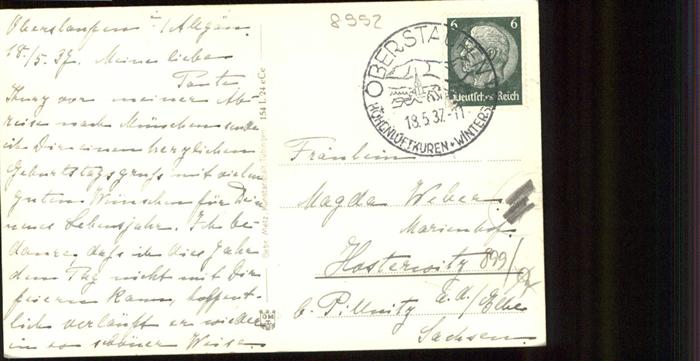 8992
Oberstaufen i/Allgäu.
18./5. 37. Meine liebe
Tante
Kurz vor meiner Ab-
reise nach München sende
ich Dir einen herzlichen
Geburtstagsgruß mit vielen
guten Wünschen für Dein
neues Lebensjahr. Ich be-
daure, daß ich dies Jahr
dem Tag nicht mit Dir
feiern kann, hoffent-
lich verläuft er wieder
in so schöner Weise.
Gebr. Metz, Tübingen
154 L 24 eCe
OBERSTAUFEN
18.5.37.-11
HÖHENLUFTKUREN • WINTERS
6 6
Deutsches Reich
Fräulein
Magda Weber.
Marienhof.
Hosterwitz
b. Pillnitz a.d./Elbe
Sachsen.